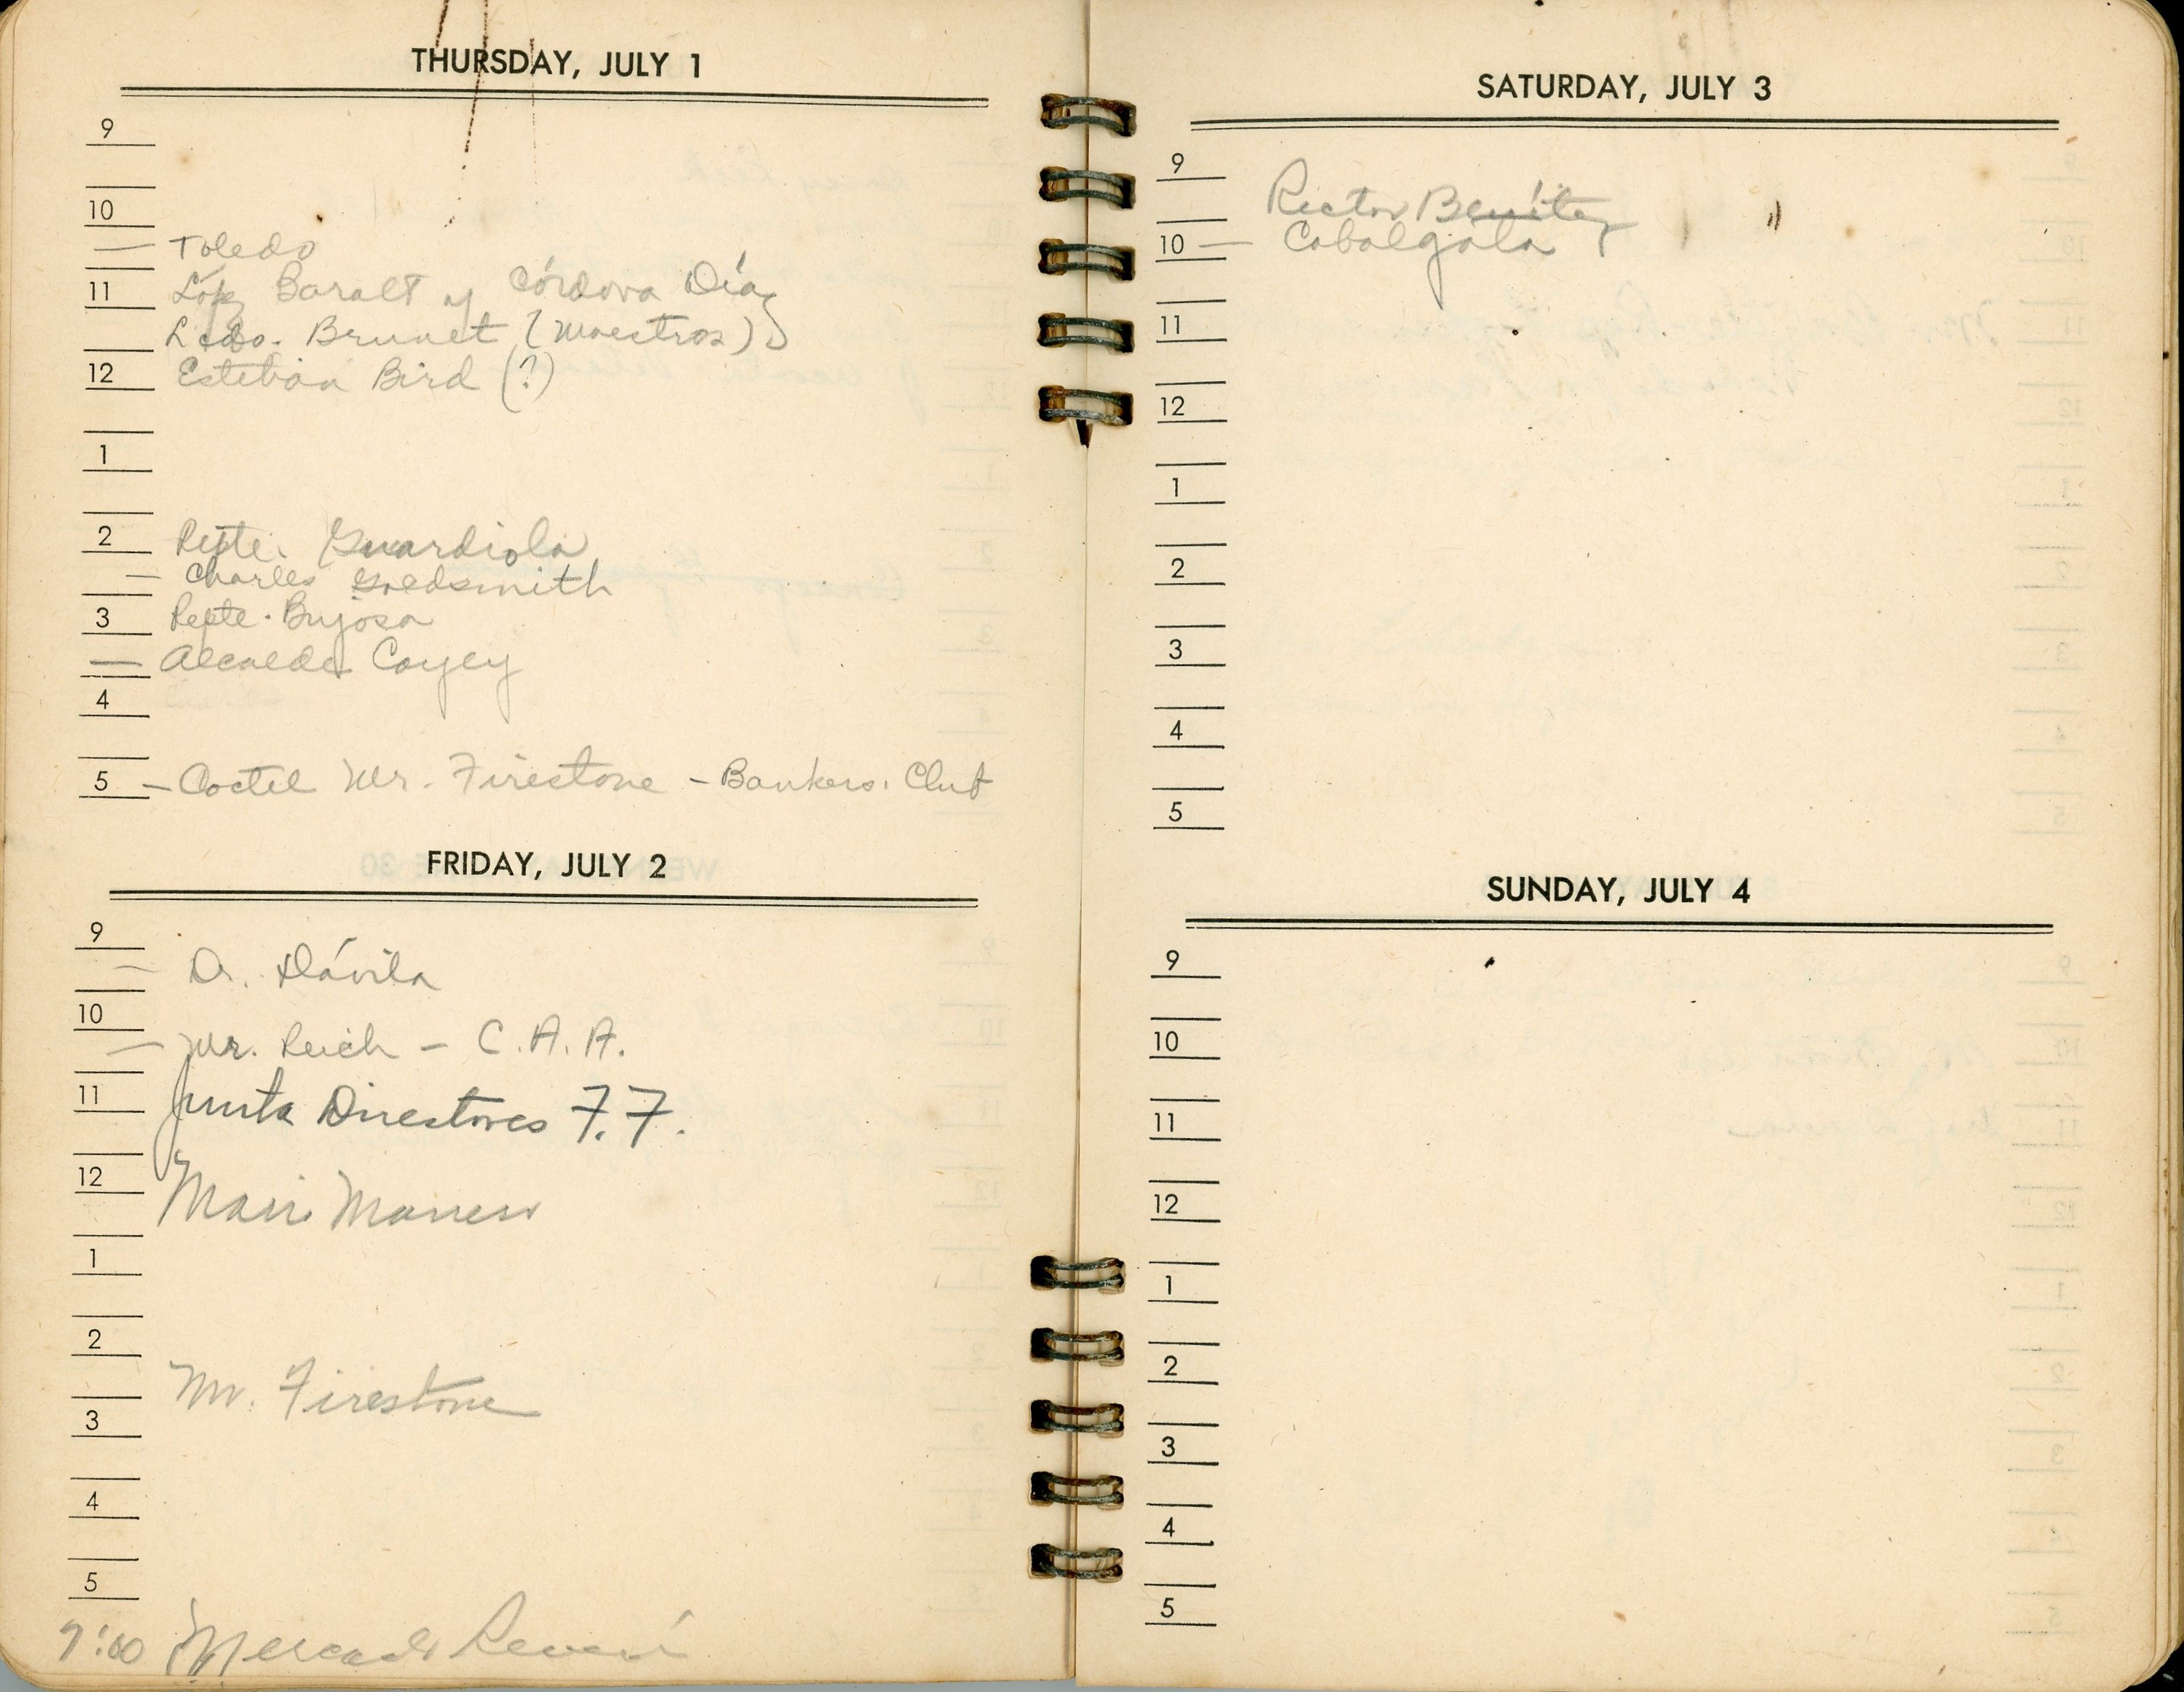 THURSDAY, JULY 1
9
10
— Toledo
11 López Baralt y Córdova Díaz
Lcdo. Brunet (Maestros)
12 Esteban Bird (?)
1
2 Repte. Guardiola
— Charles Goldsmith
3 Repte. Bujosa
— Alcalde Cayey
4
5 — Coctel Mr. Firestone — Bankers Club
FRIDAY, JULY 2
9
— Dr. Dávila
10
— Mr. Reich — C.A.A.
11 Junta Directores F.F.
12
1
2
Mr. Firestone
3
4
5
SATURDAY, JULY 3
9
Rector Benítez
10 — Cabalgata
11
12
1
2
3
4
5
SUNDAY, JULY 4
9
10
11
12
1
2
3
4
5